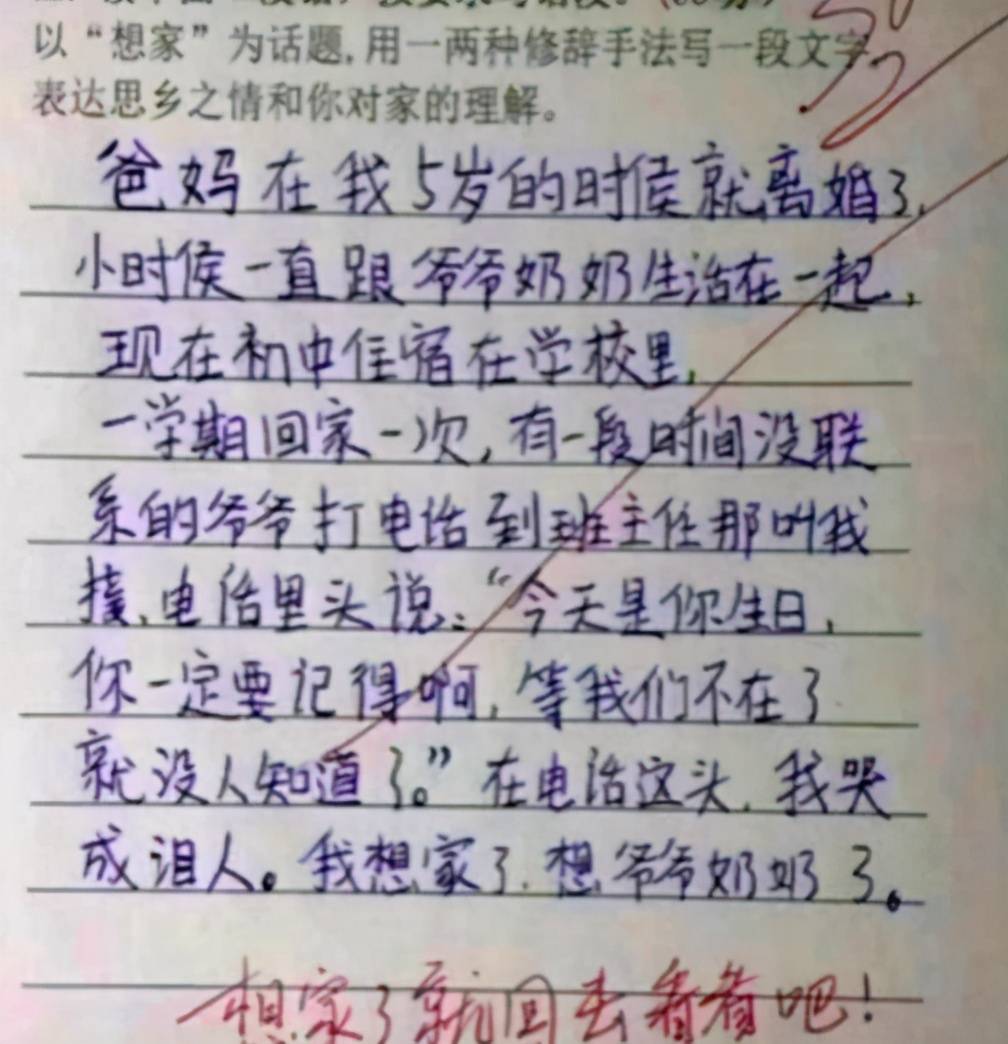 以“想家”为话题,用一两种修辞手法写一段文字
表达思乡之情和你对家的理解。
爸妈在我5岁的时候就离婚了,
小时侯一直跟爷爷奶奶生活在一起,
现在初中住宿在学校里,
一学期回家一次,有一段时间没联
系的爷爷打电话到班主任那叫我
接,电话里头说:“今天是你生日,
你一定要记得啊,等我们不在了
就没人知道了。”在电话这头,我哭
成泪人。我想家了,想爷爷奶奶了。
想家了就回去看看吧!